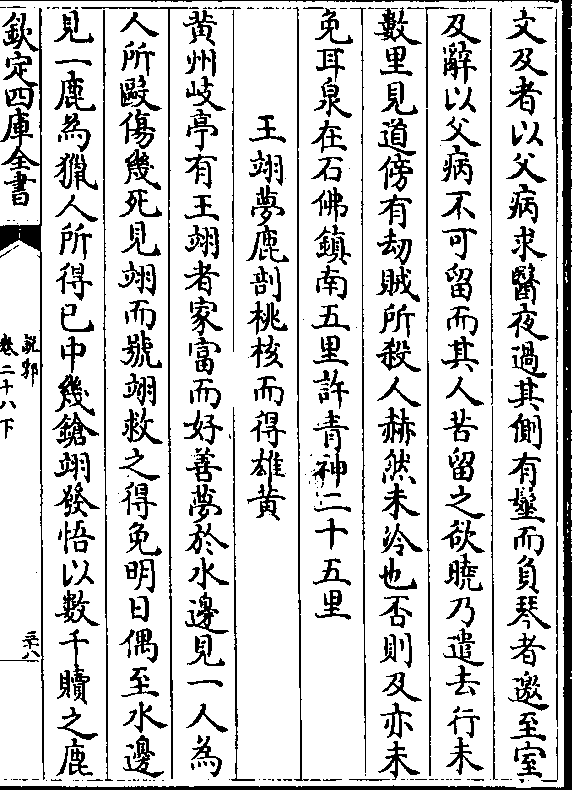 文及者以父病求醫夜過其側有髽而負琴者邀至室
及辭以父病不可留而其人苦留之欲曉乃遣去行未
數里見道傍有刼賊所殺人赫然未冷也否則及亦未
免耳泉在石佛鎮南五里許青神二十五里
王翊夢鹿剖桃核而得雄黃
黄州岐亭有王翊者家富而好善夢於水邊見一人為
人所毆傷幾死見翊而號翊救之得免明日偶至水邊
見一鹿為獵人所得已中幾鎗翊發悟以數千贖之鹿
欽定四庫全書
說郛
卷二十八下
三八